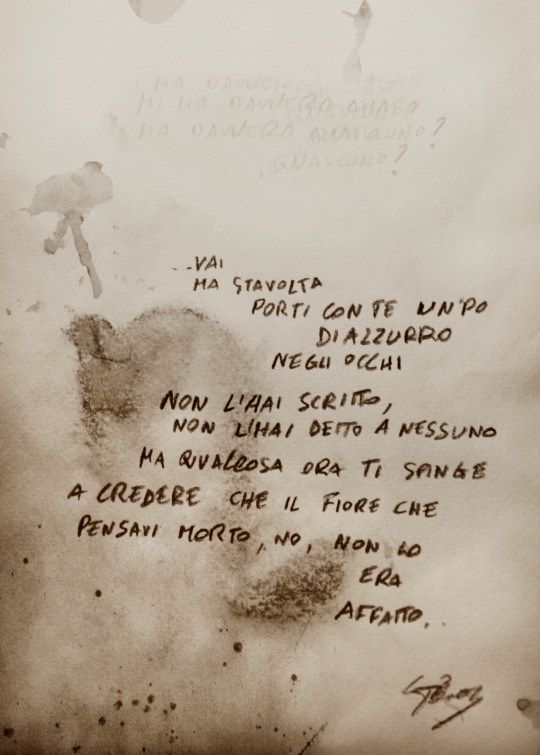 HA DAVVERO
MI HA DAVVERO AMATO
HA DAVVERO AMATO UNO?
QUALCUNO?
...VAI
MA STAVOLTA
PORTI CON TE UN'PO
DI AZZURRO
NEGLI OCCHI
NON L'HAI SCRITTO,
NON L'HAI DETTO A NESSUNO
MA QUALCOSA ORA TI SPINGE
A CREDERE CHE IL FIORE CHE
PENSAVI MORTO, NO, NON LO
ERA
AFFATTO..